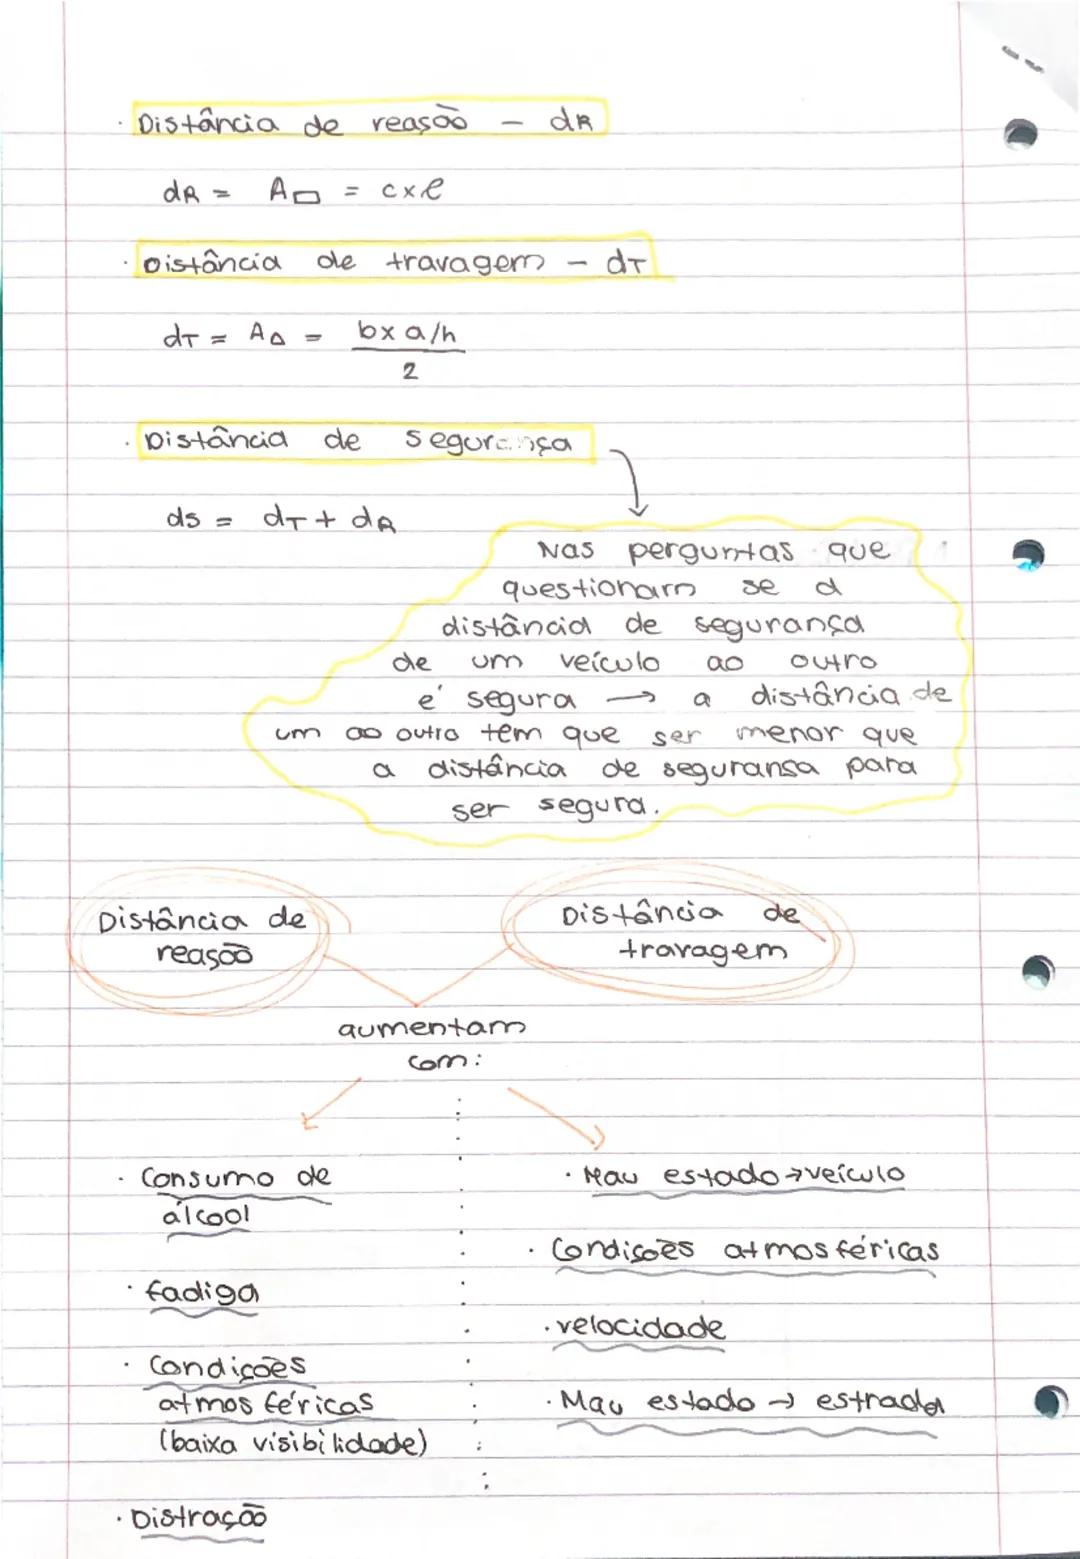 · Distância de reasão - dR
dR = A▭ = c x l
· Distância de travagem - dT
dT = A△ = b x a/h
2
· Distância de segurança
ds = dT + dR
Nas perguntas que
questionam se a
distância de segurança
de um veículo ao outro
é segura → a distância de
um ao outro tem que ser menor que
a distância de seguransa para
ser segura.
Distância de
reasão
Distância de
travagem
aumentam
com:
· Consumo de
álcool
· fadiga
· Condições
atmosféricas
(baixa visibilidade)
· Distração
· Mau estado → veículo
· Condições atmosféricas
· velocidade
· Mau estado → estrada